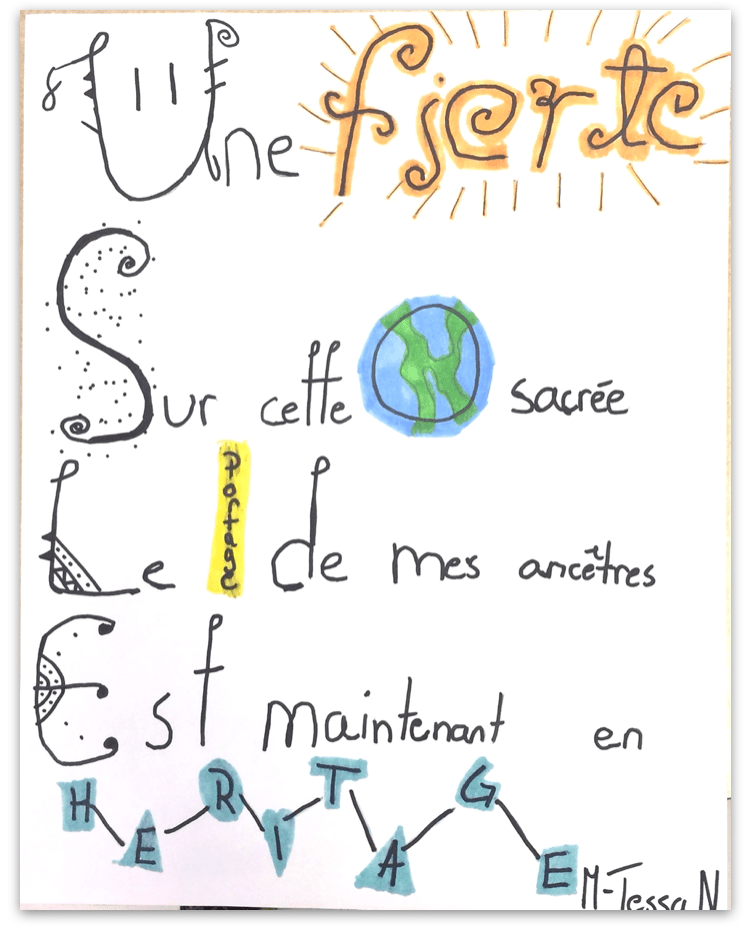 Une fierte
Sur cette sacrée
Le de mes ancêtres
Est maintenant en
HERITAGE
M-Tessa N